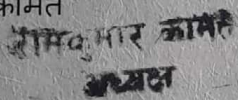 कामत
रामकुमार कामत
अध्यक्ष